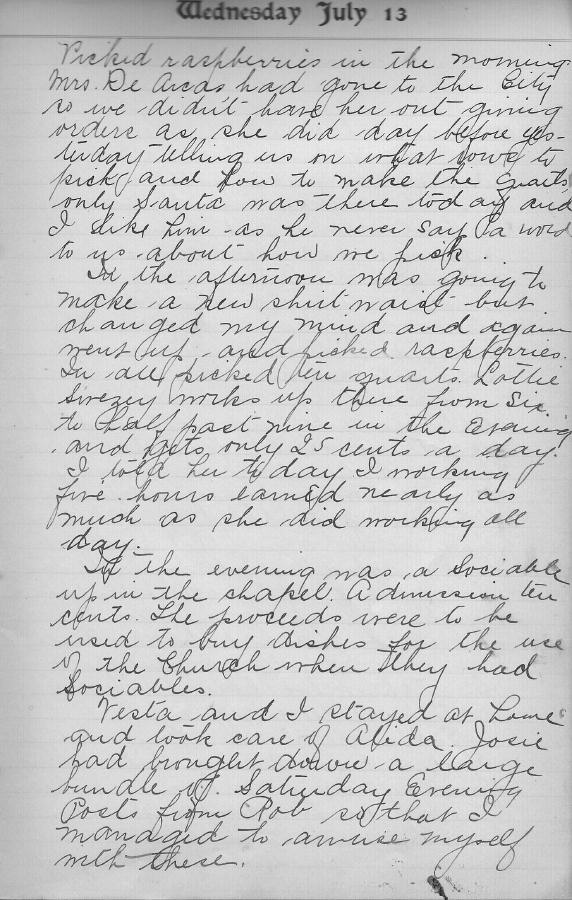 Wednesday July 13
Picked raspberries in the morning.
Mrs. De Arcas had gone to the City
so we didn't have her out giving
orders as she did day before yes-
terday telling us on what rows to
pick and how to make the quarts
only Santa was there today and
I like him as he never say's a word
to us about how we pick.
In the afternoon was going to
make a new shirt waist but
changed my mind and again
went up and picked raspberries.
In all picked ten quarts. Lottie
Swezey works up there from six
to half past nine in the Evening
and gets only 25 cents a day.
I told her today I working
five hours earned nearly as
much as she did working all
day.
In the evening was a Sociable
up in the chapel. Admission ten
cents. The proceeds were to be
used to buy dishes for the use
of the Church when they had
Sociables.
Vesta and I stayed at home
and took care of Alida. Josie
had brought down a large
bundle of Saturday Evening
Posts from Rob so that I
managed to amuse myself
with these.